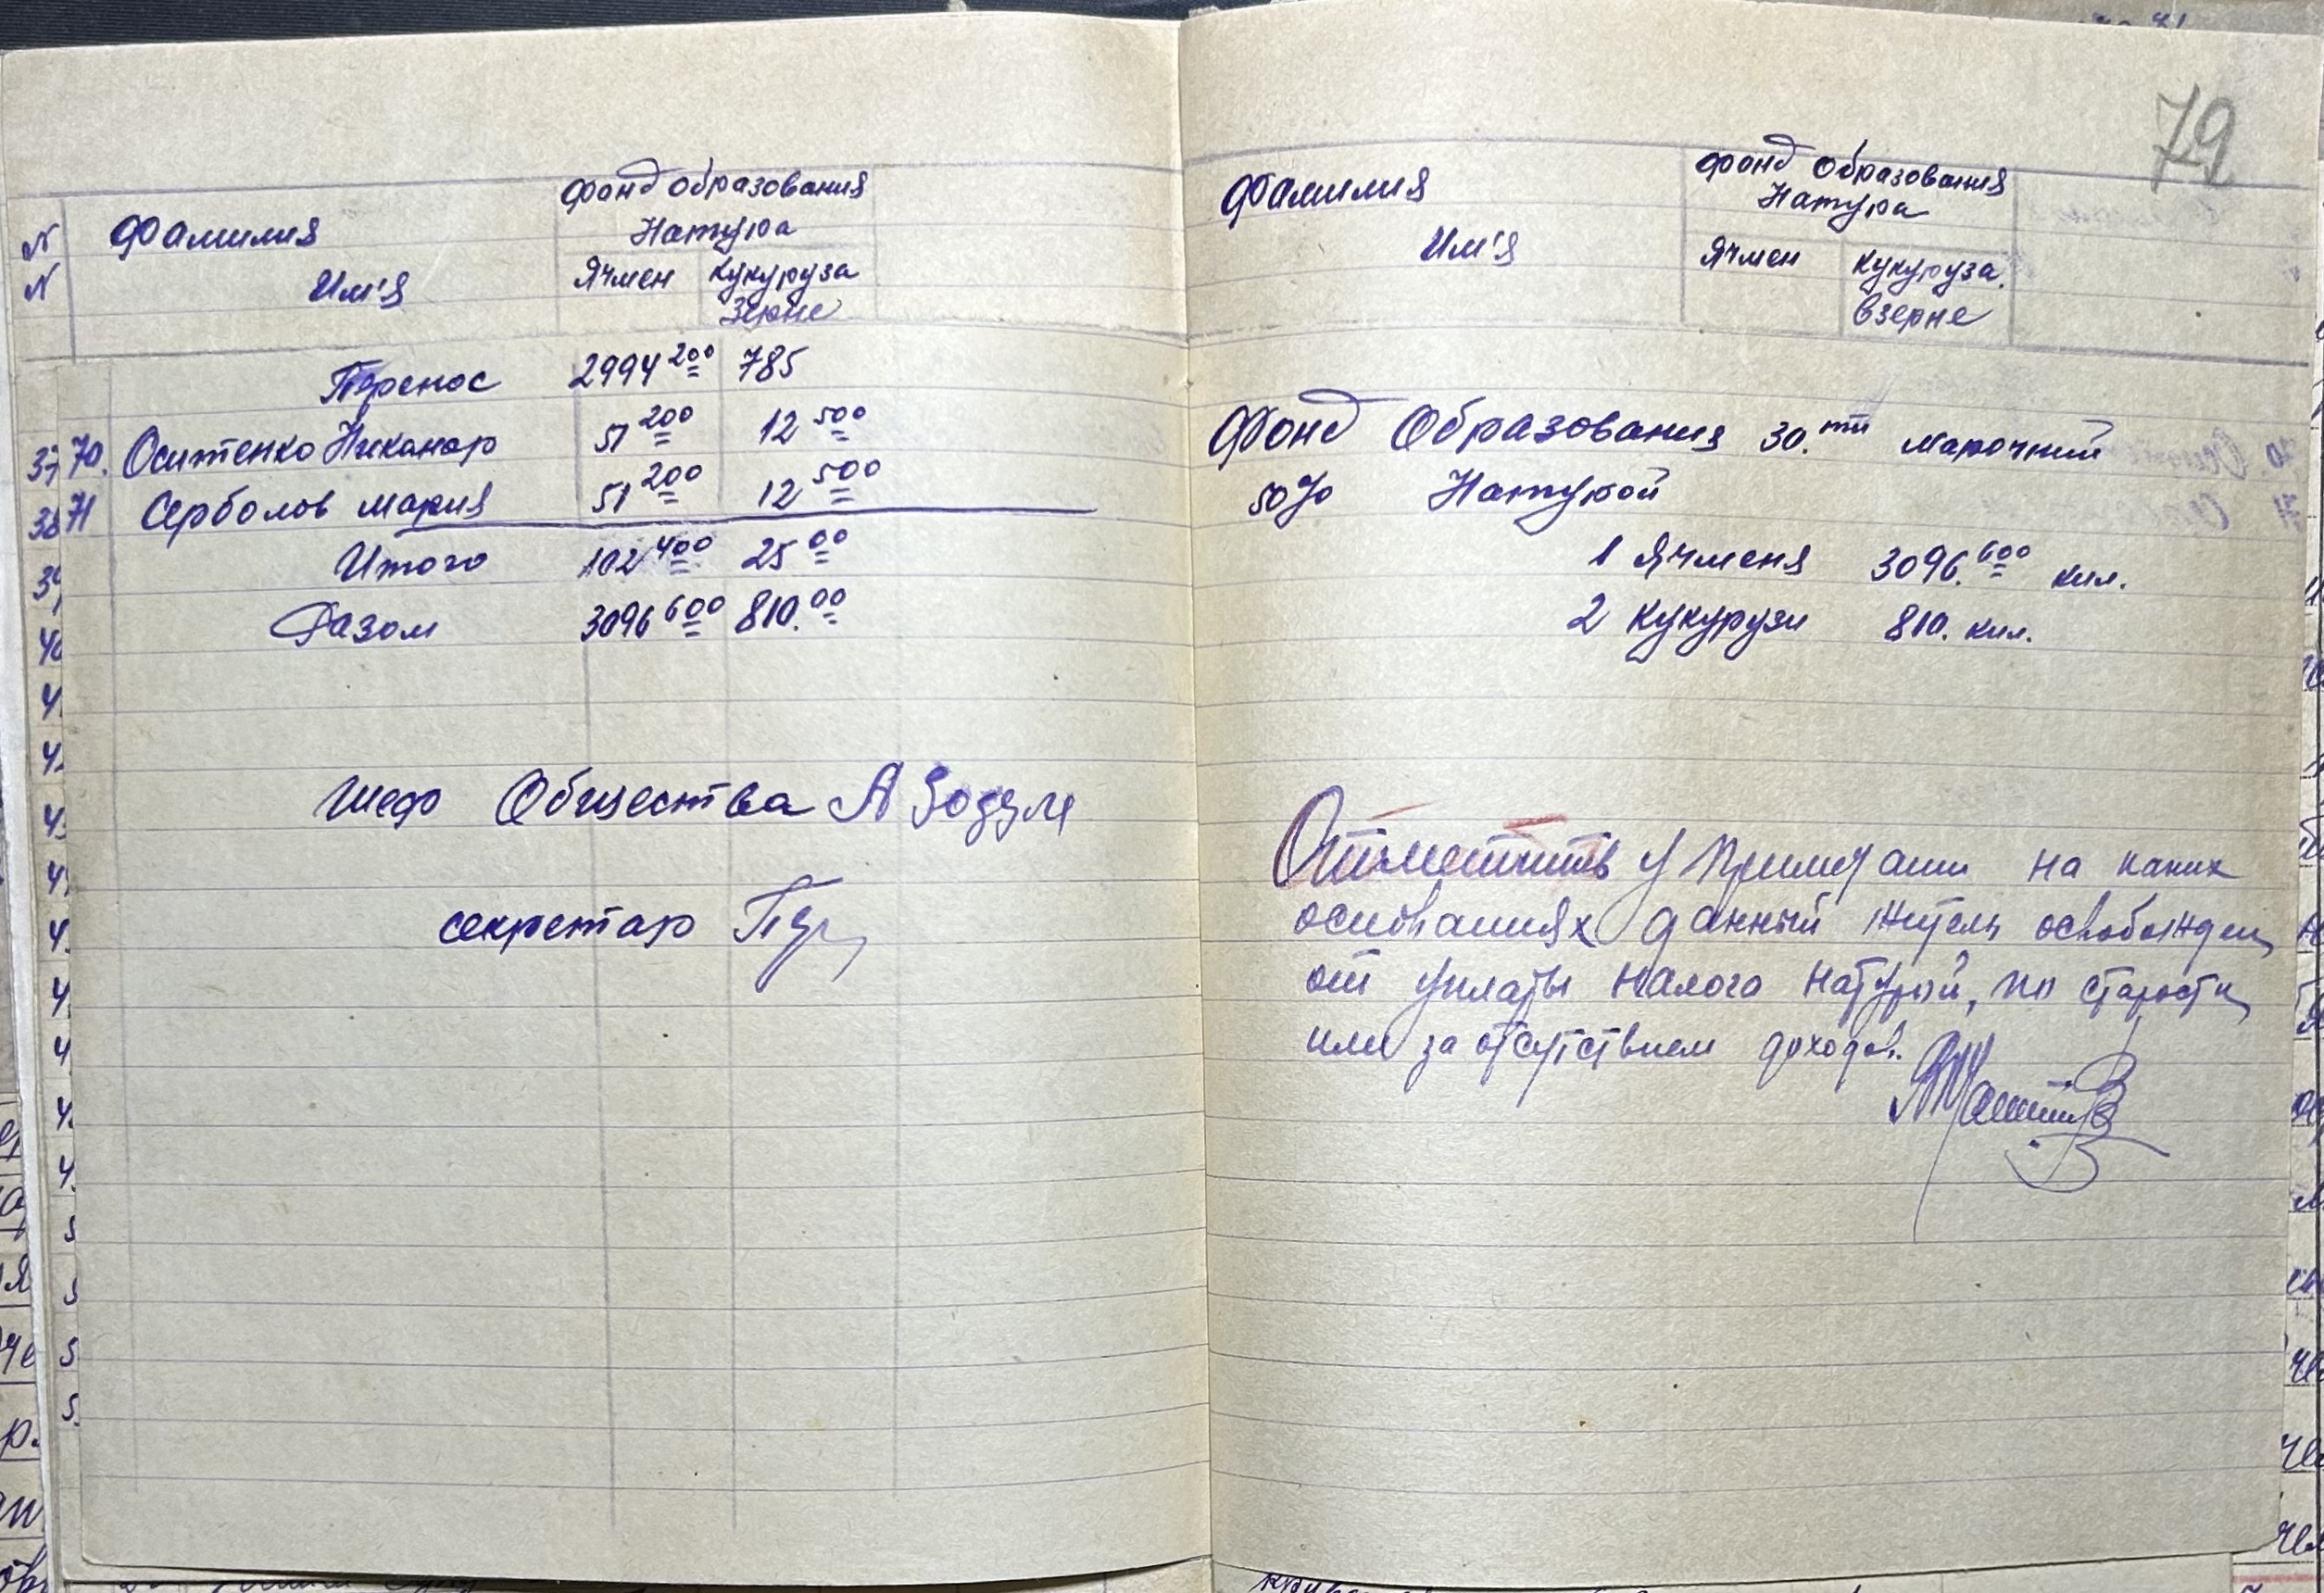 Фонд Образования
Натура
N Фамилия
N Им'я
Ячмен Кукуруза
Зерне
Перенос 2994 200 785
70. Осипенко Никанор 51 200 12 500
71 Серболов Мария 51 200 12 500
Итого 102 400 25 00
Разом 3096 600 810. 00
Шеф Общества А
секретар
79
Фамилия
Им'я
Фонд Образования
Натура
Ячмен Кукуруза.
взерне
Фонд Образования 30.ти марочний
50% Натурой
1 Ячменя 3096. 600 кил.
2 Кукурузи 810. кил.
Отметить у примечании на каких
основаниях данный житель освобожден
от уплаты налога натурой, по старости
или за отсутствием доходов.